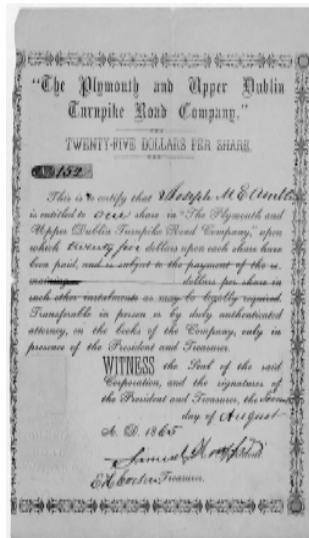 "The Plymouth and Upper Dublin
Turnpike Road Company,"
TWENTY-FIVE DOLLARS PER SHARE.
152
This is to certify that Joseph M
is entitled to one share in "The Plymouth and
Upper Dublin Turnpike Road Company," upon
which twenty five dollars upon each share have
been paid, and is subject to the payment of the re-
dollars per share in
such other instalments as may be legally required.
Transferable in person or by duly authenticated
attorney, on the books of the Company, only in
presence of the President and Treasurer.
WITNESS the Seal of the said
Corporation, and the signatures of
the President and Treasurer, the
day of August
A. D. 1865
Samuel
Treasurer.